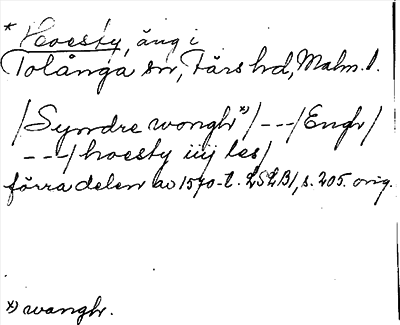 * Hoesty, äng i
Tolånga sn, Färs hd, Malm. l.
/Syndre wongh*)/---/Engh/
---/hoesty iiij les/
förra delen av 1570-t. LSLB1, s. 205. orig.
*) wangh.